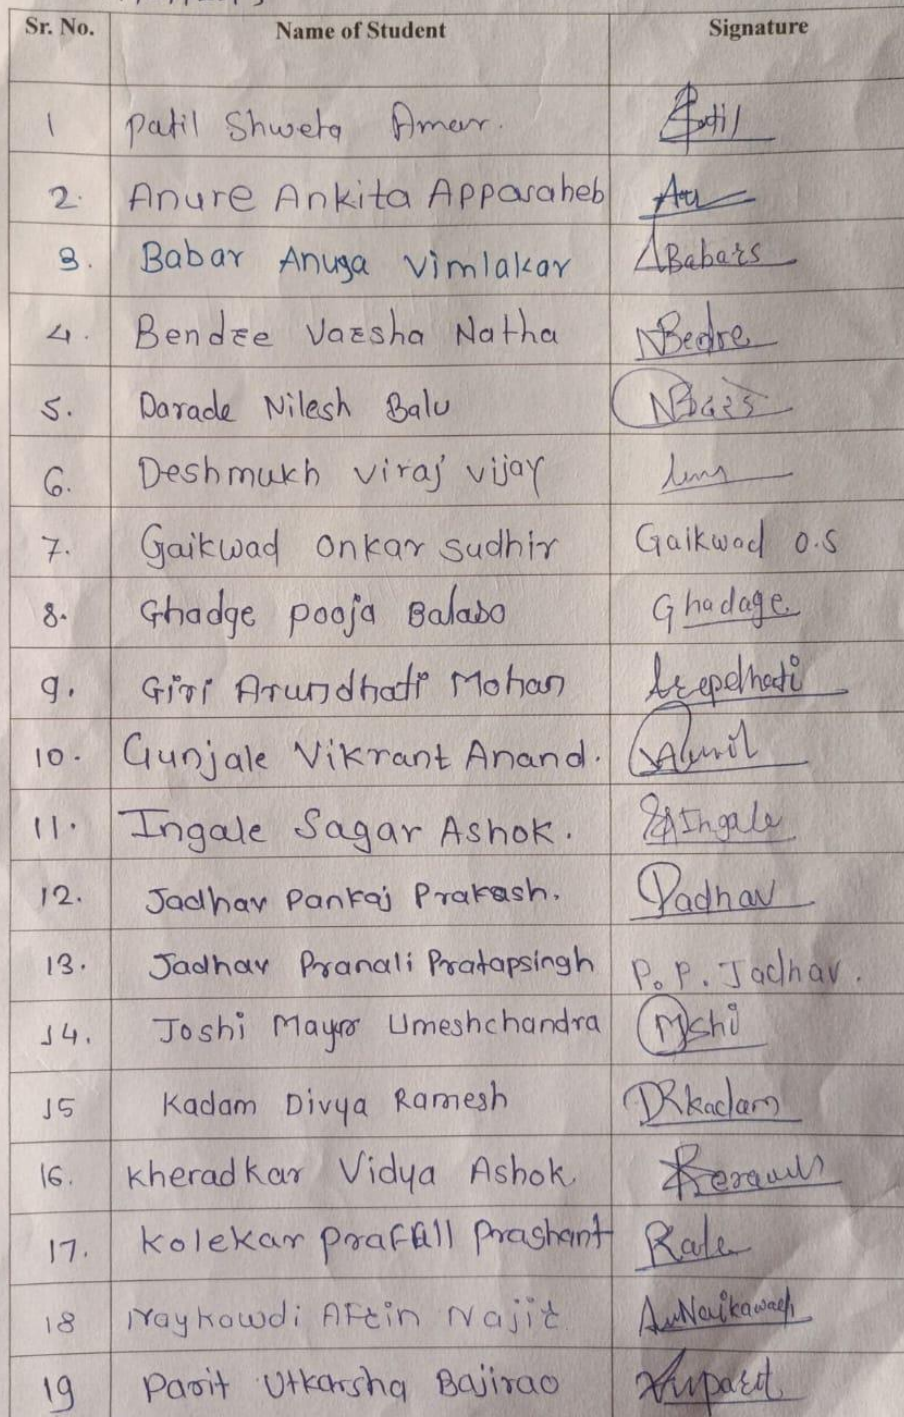 Sr. No. Name of Student Signature
1 Patil Shweta Amar. Patil
2. Anure Ankita Apparaheb
3. Babar Anuja Vimlakar ABabars
4. Bendre Varsha Natha NBedre
5. Darade Nilesh Balu
6. Deshmukh viraj vijay
7. Gaikwad Onkar Sudhir Gaikwad O.S
8. Ghadge pooja Balaso Ghadage
9. Giri Arundhati Mohan
10. Gunjale Vikrant Anand.
11. Ingale Sagar Ashok. SAIngale
12. Jadhav Pankaj Prakash. Padhav
13. Jadhav Pranali Pratapsingh P. P. Jadhav.
14. Joshi Umeshchandra Mshi
15 Kadam Divya Ramesh DRkadam
16. Kheradkar Vidya Ashok.
17. Kolekar Prafull Prashant
18 Naykowdi Najit
19 Parit Utkarsha Bajirao